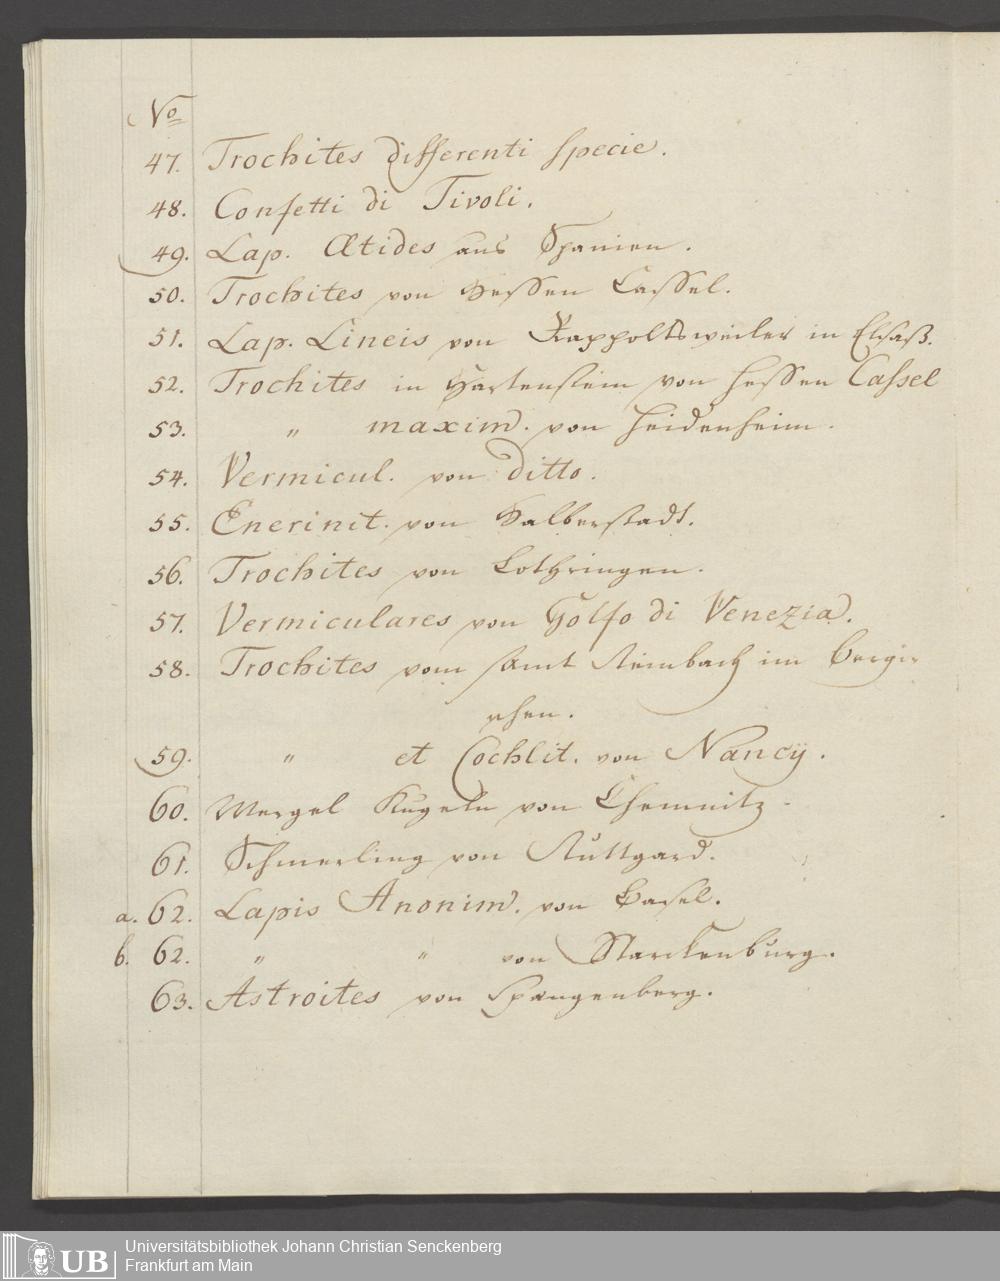 No
47. Trochites differenti specie.
48. Confetti di Tivoli.
49. Lap. Ætides aus Spanien.
50. Trochites von Hessen Cassel.
51. Lap. Lineis von Rappoltsweiler in Elsaß.
52. Trochites in Hartenstein von Hessen Cassel
53. " maxim. von Heidenheim.
54. Vermicul. von ditto.
55. Enerinit. von Halberstadt.
56. Trochites von Lothringen.
57. Vermiculares von Golfo di Venezia.
58. Trochites vom Amt Steinbach im Bergi-
schen.
59. " et Cochlit. von Nancÿ.
60. Mergel Kugeln von Chemnitz.
61. Schmerling von Stuttgard.
a. 62. Lapis Anonim. von Basel.
b. 62. " " von Starckenburg.
63. Astroites von Spangenberg.
UB
Universitätsbibliothek Johann Christian Senckenberg
Frankfurt am Main